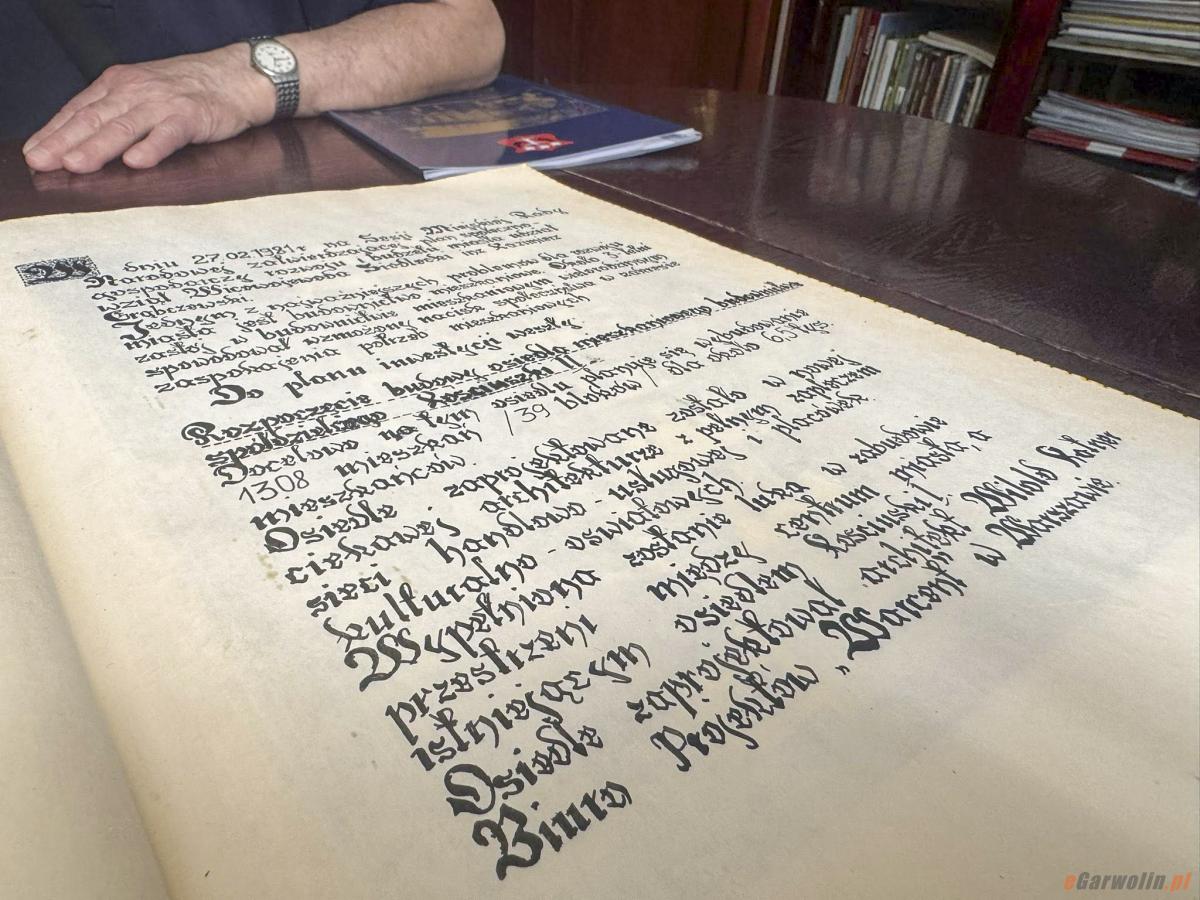 W dniu 27.02.1981r na Sesji Miejskiej Rady
Narodowej zatwierdzającej plan społeczno-
gospodarczy rozwoju Łuk miasta udział
wziął Wicewojewoda Siedlecki inż Kazimierz
Grąbczewski.
Jednym z najważniejszych problemów dla rozwoju
miasta jest budownictwo mieszkaniowe. Około 3 letni
zastój w budownictwie mieszkaniowym wielorodzinnym
spowodował wzmożony nacisk społeczeństwa w zakresie
zaspokojenia potrzeb mieszkaniowych
Do planu inwestycji weszły
Rozpoczęcie budowy osiedla mieszkaniowego budownictwa
spółdzielczego Kościuszki II
Docelowo na tym osiedlu planuje się wybudowanie
1308 mieszkań /39 bloków/ dla około 6,5 tys.
mieszkańców.
Osiedle zaprojektowane zostało w nowej
ciekawej architekturze z pełnym zapleczem
sieci handlowo-usługowej i placówek
kulturalno-oswiatowych
Wypełniona zostanie luka w zabudowie
przestrzeni między centrum miasta, a
istniejącym osiedlem Kościuszki I.
Osiedle zaprojektował architekt Witold
Biuro Projektów „Warcent" w Warszawie.
eGarwolin.pl